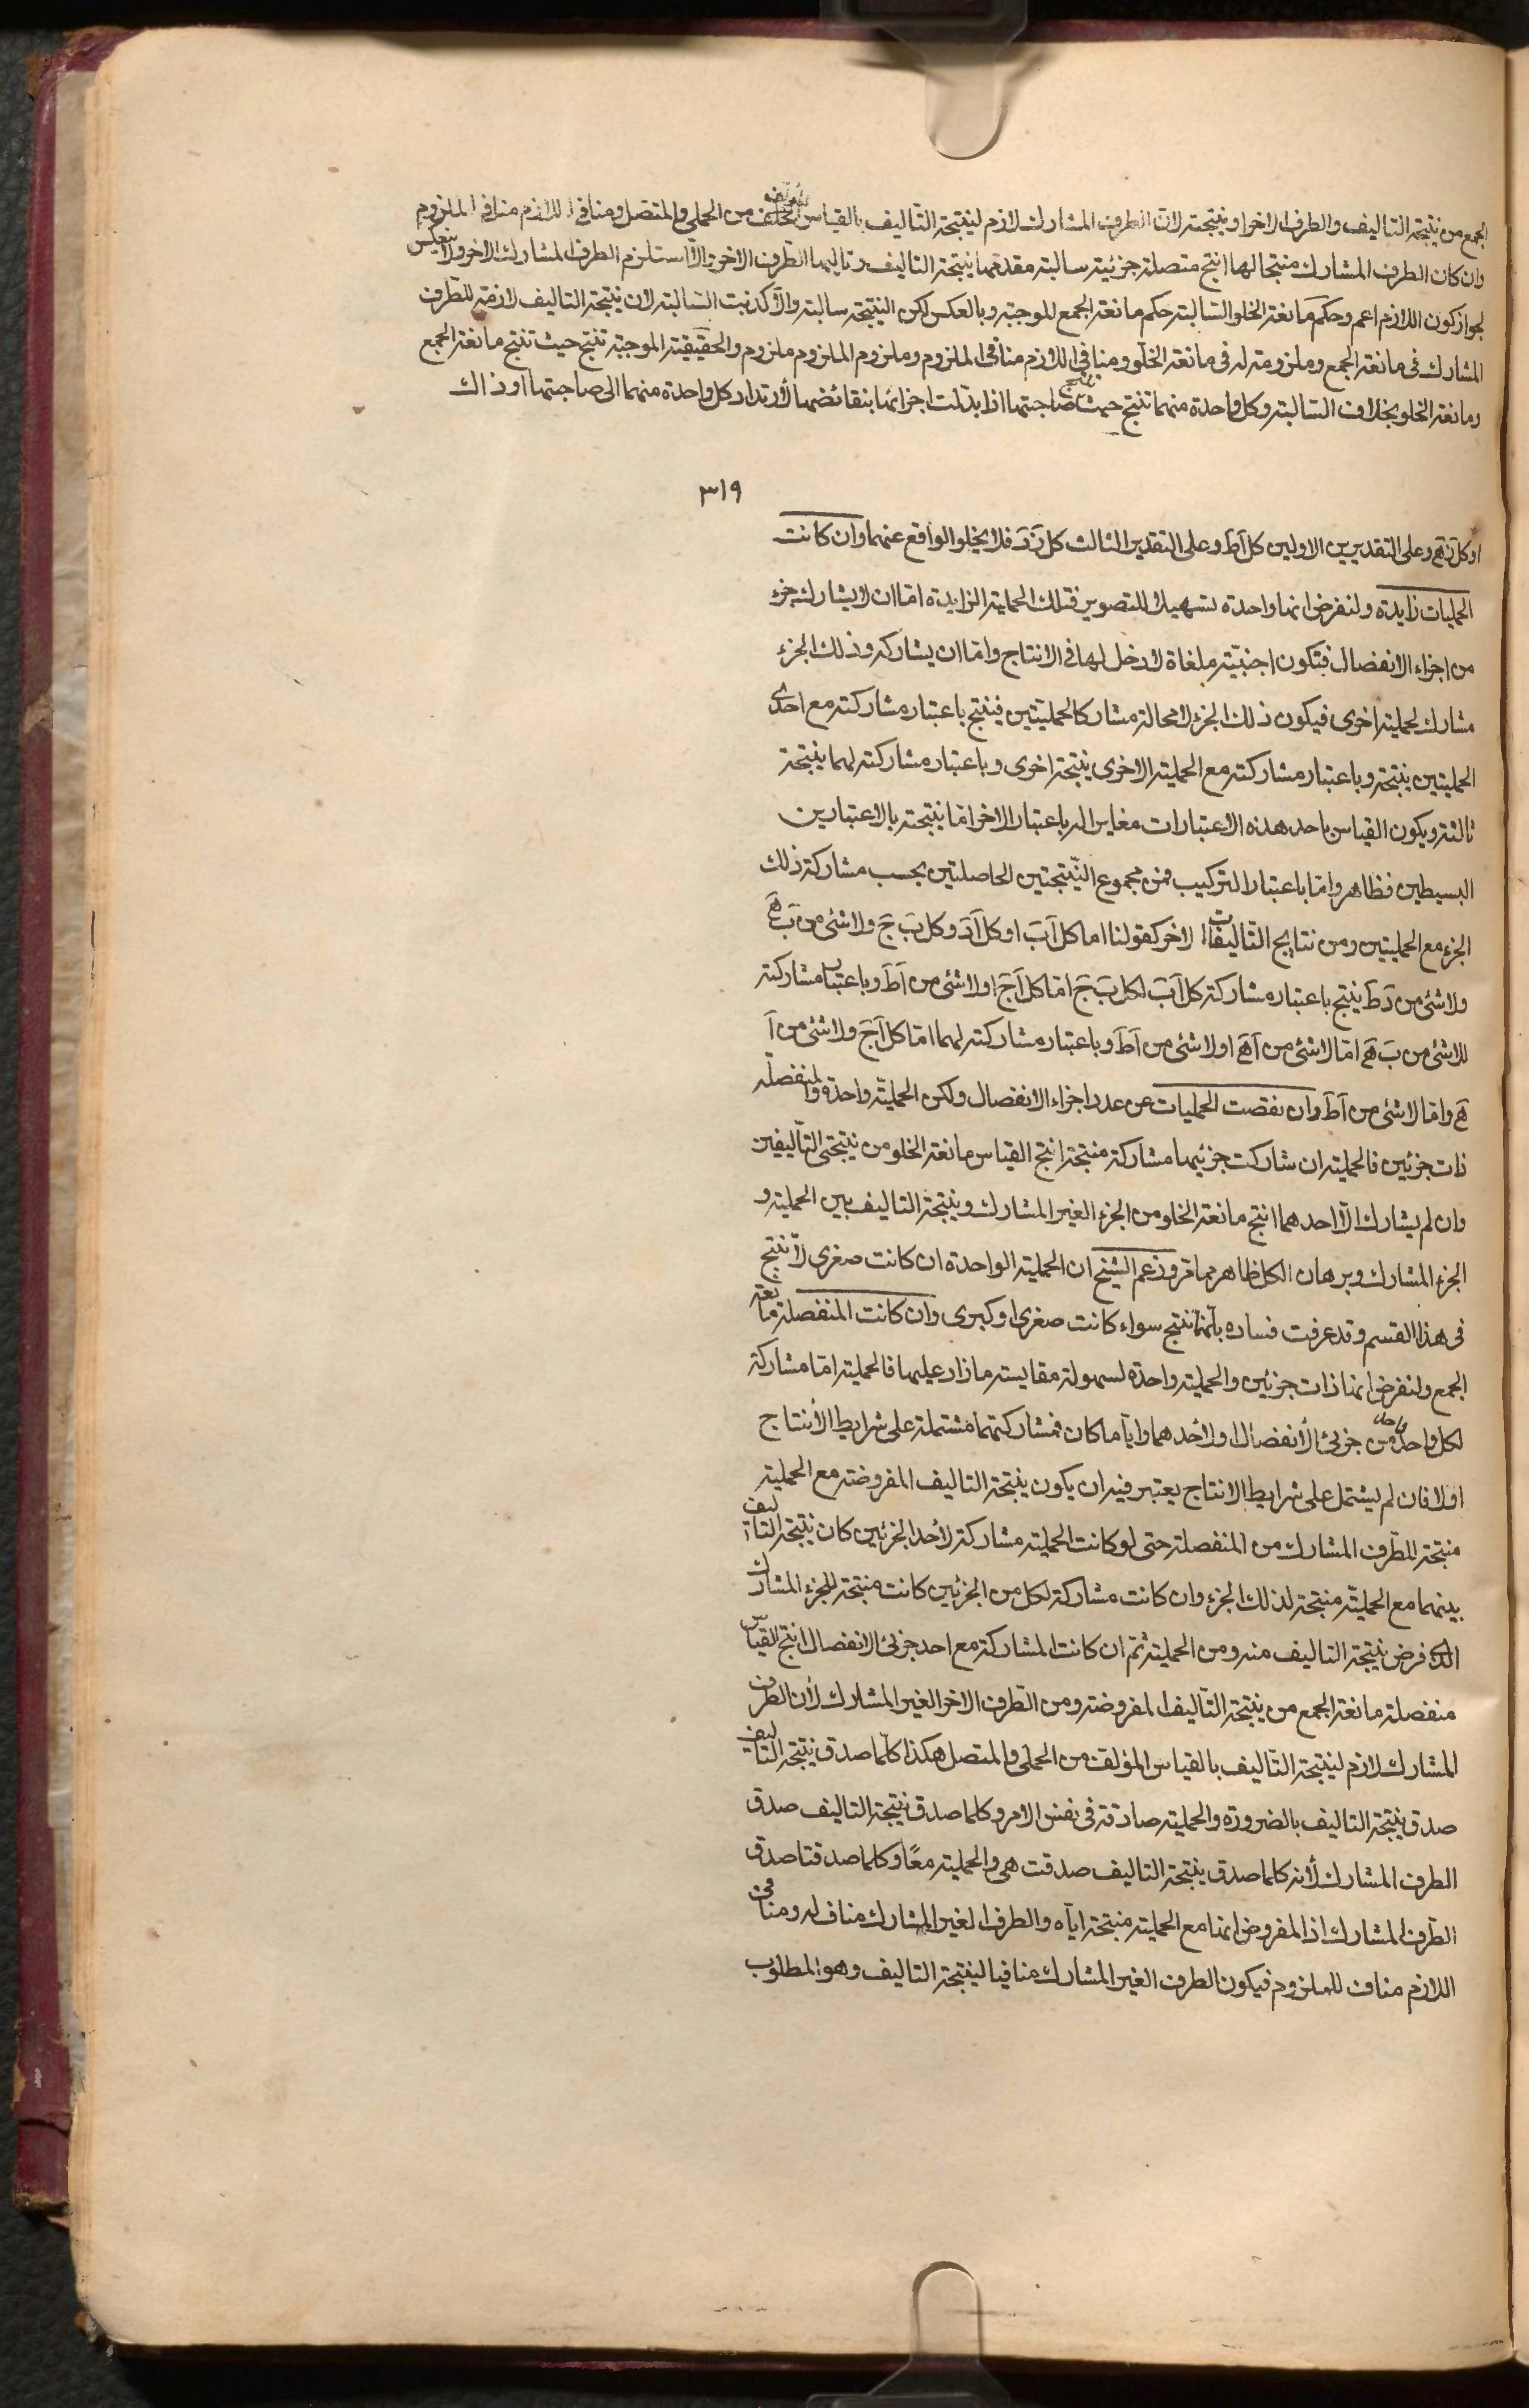 الجمع من نتيجة التاليف والطرف الاخر او نتيجته لان الطرف المشارك لازم لنتيجة التاليف بالقياس المؤلف من الحملي والمتصل ومنافي اللازم منافي الملزوم
وان كان الطرف المشارك منتجا لها انتج متصلة جزئية سالبة مقدمها نتيجة التاليف وتاليها الطرف الاخر والا استلزم الطرف المشارك الاخر ولا ينعكس
لجواز كون اللازم اعم وحكم مانعة الخلو السالبة حكم مانعة الجمع للموجبة وبالعكس لكن النتيجة سالبة والا كذبت السالبة لان نتيجة التاليف لازمة للطرف
المشارك في مانعة الجمع وملزومة له في مانعة الخلو ومنافي اللازم منافي الملزوم وملزوم الملزوم ملزوم والحقيقية الموجبة تنتج حيث تنتج مانعة الجمع
ومانعة الخلو بخلاف السالبة وكل واحدة منهما تنتج حيث تنتج صاحبتها اذا بدلت اجزائها بنقائضها لارتداد كل واحدة منهما الى صاحبتها اوذاك
٣١٩
او كل زه وعلى التقديرين الاولين كل اط وعلى التقدير الثالث كل زد فلا يخلو الواقع عنهما وان كانت
الحمليات زايدة ولنفرض انها واحدة تسهيلا للتصوير فتلك الحملية الزايدة اما ان لا يشارك جزء
من اجزاء الانفصال فتكون اجنبية ملغاة لا دخل لها في الانتاج واما ان يشاركه وذلك الجزء
مشارك لحملية اخرى فيكون ذلك الجزء لا محالة مشاركا لحمليتين فينتج باعتبار مشاركته مع احدى
الحمليتين نتيجة وباعتبار مشاركته مع الحملية الاخرى نتيجة اخرى وباعتبار مشاركته لهما نتيجة
ثالثة ويكون القياس باحد هذه الاعتبارات مغايرا له باعتبار الاخر اما نتيجته بالاعتبارين
البسيطين فظاهر واما باعتبار التركيب فمن مجموع النتيجتين الحاصلتين بحسب مشاركة ذلك
الجزء مع الحمليتين ومن نتايج التاليفات الاخر كقولنا اما كل اب او كل اد وكل ب ج ولا شئ من ب ه
ولا شئ من دط ينتج باعتبار مشاركة كل اب لكل ب ج اما كل اج او لا شئ من اط وباعتبار مشاركته
للاشئ من ب ه اما لا شئ من اه او لا شئ من اط وباعتبار مشاركته لهما اما كل اج ولا شئ من ا
ه واما لا شئ من اط وان نقصت الحمليات عن عدد اجزاء الانفصال ولكن الحملية واحدة والمنفصلة
ذات جزئين فالحملية ان شاركت جزئيها مشاركة منتجة انتج القياس مانعة الخلو من نتيجتي التاليفين
وان لم يشارك الا احدهما انتج مانعة الخلو من الجزء الغير المشارك ونتيجة التاليف بين الحملية و
الجزء المشارك وبرهان الكل ظاهر مما مر وزعم الشيخ ان الحملية الواحدة ان كانت صغرى لا تنتج
في هذا القسم وقد عرفت فساده بانها تنتج سواء كانت صغرى او كبرى وان كانت المنفصلة مانعة
الجمع ولنفرض انها ذات جزئين والحملية واحدة لسهولة مقايسة ما زاد عليها فالحملية اما مشاركة
لكل واحد واحد من جزئي الانفصال او لاحدهما وايا ما كان فمشاركتهما مشتملة على شرايط الانتاج
او لا فان لم يشتمل على شرايط الانتاج يعتبر فيه ان يكون نتيجة التاليف المفروضة مع الحملية
منتجة للطرف المشارك من المنفصلة حتى لو كانت الحملية مشاركة لاحد الجزئين كان نتيجة التاليف
بينهما مع الحملية منتجة لذلك الجزء وان كانت مشاركة لكل من الجزئين كانت منتجة للجزء المشارك
الذي فرض نتيجة التاليف منه ومن الحملية ثم ان كانت المشاركة مع احد جزئي الانفصال انتج القياس
منفصلة مانعة الجمع من نتيجة التاليف المفروضة ومن الطرف الاخر الغير المشارك لان الطرف
المشارك لازم لنتيجة التاليف بالقياس المؤلف من الحملي والمتصل هكذا كلما صدق نتيجة التاليف
صدق نتيجة التاليف بالضرورة والحملية صادقة في نفس الامر وكلما صدق نتيجة التاليف صدق
الطرف المشارك لانه كلما صدق نتيجة التاليف صدقت هي والحملية معًا وكلما صدقتا صدق
الطرف المشارك اذ المفروض انها مع الحملية منتجة اياه والطرف الغير المشارك مناف له ومنافي
اللازم مناف للملزوم فيكون الطرف الغير المشارك منافيا لنتيجة التاليف وهو المطلوب